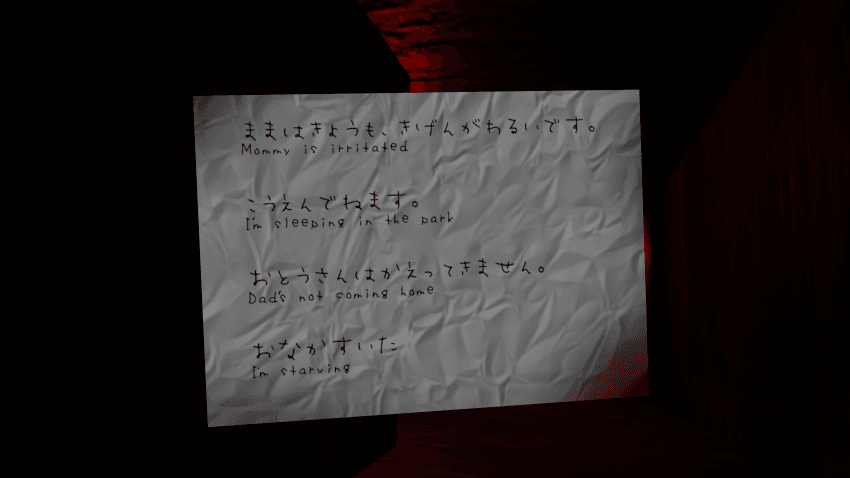 ままはきょうも、きげんがわるいです。
Mommy is irritated
こうえんでねます。
I'm sleeping in the park
おとうさんはかえってきません。
Dad's not coming home
おなかすいた
I'm starving